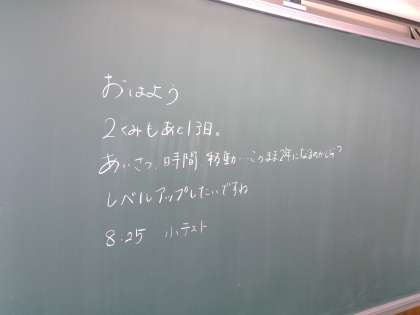 おはよう
2くみもあと1ヶ月。
あいさつ、時間、移動…このまま2年になるのかしら?
レベルアップしたいですね
8:25 小テスト